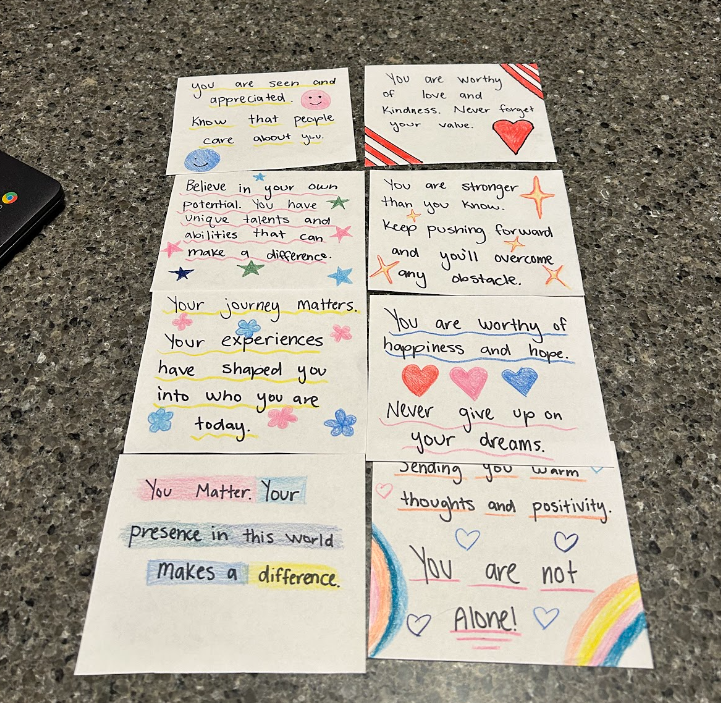 you are seen and
appreciated.
Know that people
care about you.
You are worthy
of love and
kindness. Never forget
your value.
Believe in your own
potential. You have
unique talents and
abilities that can
make a difference.
You are stronger
than you know.
Keep pushing forward
and you'll overcome
any obstacle.
Your journey matters.
Your experiences
have shaped you
into who you are
today.
You are worthy of
happiness and hope.
Never give up on
your dreams.
You Matter. Your
presence in this world
makes a difference.
Sending you warm
thoughts and positivity.
You are not
Alone!